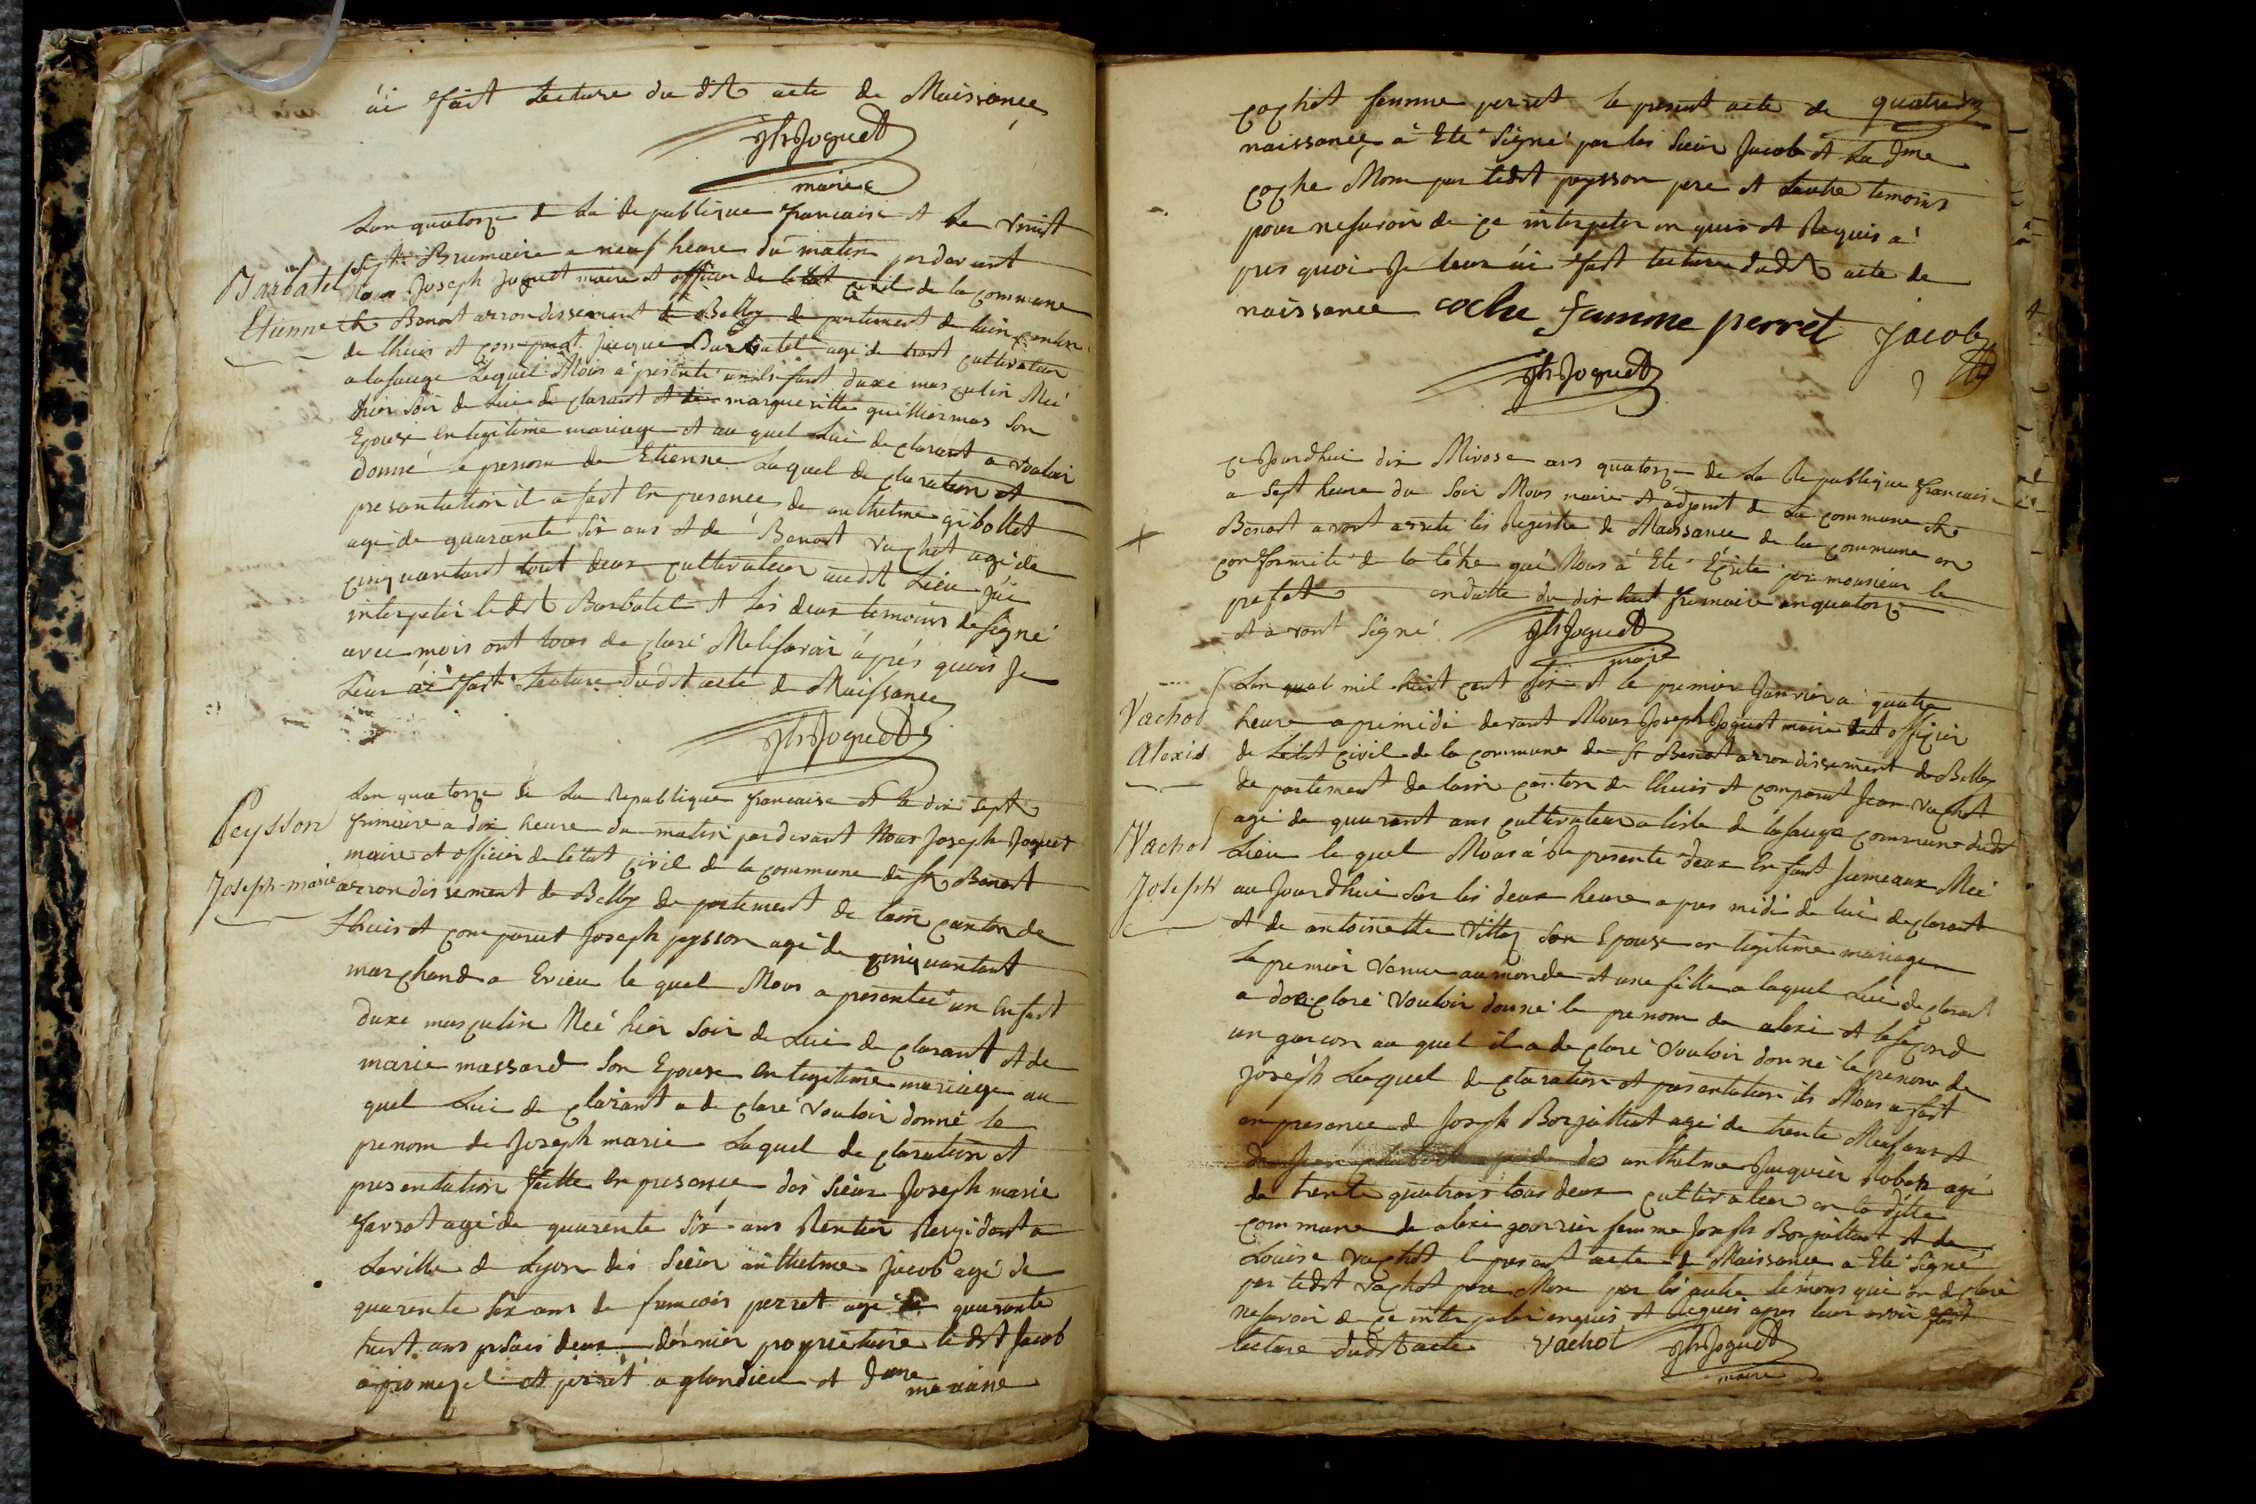 ái fait Lecture du dit acte de Naissance
Jh Joguet
maire
Lan quatorze de La Republique francaise et Le vint
Sept Brumaire a neuf heure du matin pardevant
Barbatel
Joseph Joguet maire et officier de letat civil de la commune
Etienne
St Benoit arrondissement de Belley de partement de lain canton
de lhuis et comparut jacque Barbatel agé de trant cultivateur
a lasauge Lequel Nous á présenté un enfant duxe masculin Neé
hier soir de Lui de clarant et de margueritte guillermas Son
Epouse en legitime mariage et au quel Lui de clarant a voulair
donné le prenom de Etienne Laquel de claration et
presantation il a fait en presance de anthelme gibollet
agé de quarante six ans et de Benoit vachot agé de
cinquantant tout deux cultivateur audit Lieu jái
interpeler ledit Barbatel et les deux temoins de signé
avec mois ont tous de claré Nelesavair áprés quois Je
Leur ái fait Lecture dudit acte de Naissance
Jh Joguet
Lan quatorze de La Republique francaise et le dix sept
frimaire a dix heure du matin pardevant Nous Joseph Joguet
Peysson
maire et officier de létat civil de la commune de St Benoit
Joseph-marie
arrondissement de Belley de partement de lain canton de
Lhuis et comparut Joseph peysson agé de cinquantant
marchand a Evieu le quel Nous a presentée un enfant
duxe masculin Neé hier soir de Lui de clarant et de
marie massard Son Epouse en legitime mariage au
quel Lui de clarant a de claré vouloir donné le
prenom de Joseph marie Laquel de claration et
presentation faitte en presance des sieur Joseph marie
favrot agé de quarente six ans Rentier Resydant a
Laville de Lyon des sieur anthelme Jacob agé de
quarente six ans de francois perret agé de quarante
huit ans psais deux dérnier propriétaire ledit Jacob
et perret a glandieu et Dame mariane
cochet femme perret le present acte de quatre
naissance á Eté signé par les sieur Jacob et La Dme
coche Non par ledit peysson pere et Lautre temoins
pour nesavoir de ce interpeler en quis et Requis á
pres quoi Je leur ái fait lecture dudit acte de
naissance coche famme perret Jacob
Jh Joguet
ce Jourdhui dix Nivose ans quatorze de La Republique francaise
a sept heure du soir Nous maire et adjoint de La commune St
Benoit avont arreté les Registre de Naissance de la commune en
conformité de la léttre qui Nous á Eté Ecrite par monsieur le
prefet en datte du dix huit frimaire an quatorze
et avont signé Jh Joguet
maire
Lan mil huit cent six et le premier Janvier a quatre
Vachot
heure apremidi devant Nous Joseph Joguet maire et officier
Alexis
de Létat civil de la commune de St Benoit arrondissement de Belley
de partement de lain canton de lhuis et comparut Jean Vachot
agé de quarant ans cultivateur a lisle de lasauge commune dudit
Vachot
Lieu le quel Nous á presenté deux enfant Jumeaux Neé
Joseph
au Jourdhui sur les deux heure apres midi de lui declarant
et de antoinette Vittoz Son Epouse en legitime mariage
Le premier venue au monde et une fille a laquel Lui de clarant
a de claré vouloir donné le prenom de alexi et le second
un garcon au quel il a de claré vouloir donné le prenom de
Joseph Laquel de claration et presentation ils Nous a fait
en presence de Joseph Borjaillut agé de trente Neuf ans et
des anthelme Jacquier Robez agé
de trente quatrans tous deux cultivateur en la ditte
commune de alexi gourrier femme Joseph Borjaillut et de
Louise vachot le present acte de Naissance a Eté signé
par ledit vachot pere Non par les autre témoins qui on declaré
nesavoir de ce interpeler enquis et requis apres leur avoir fait
lecture dudit acte vachot Jh Joguet
maire